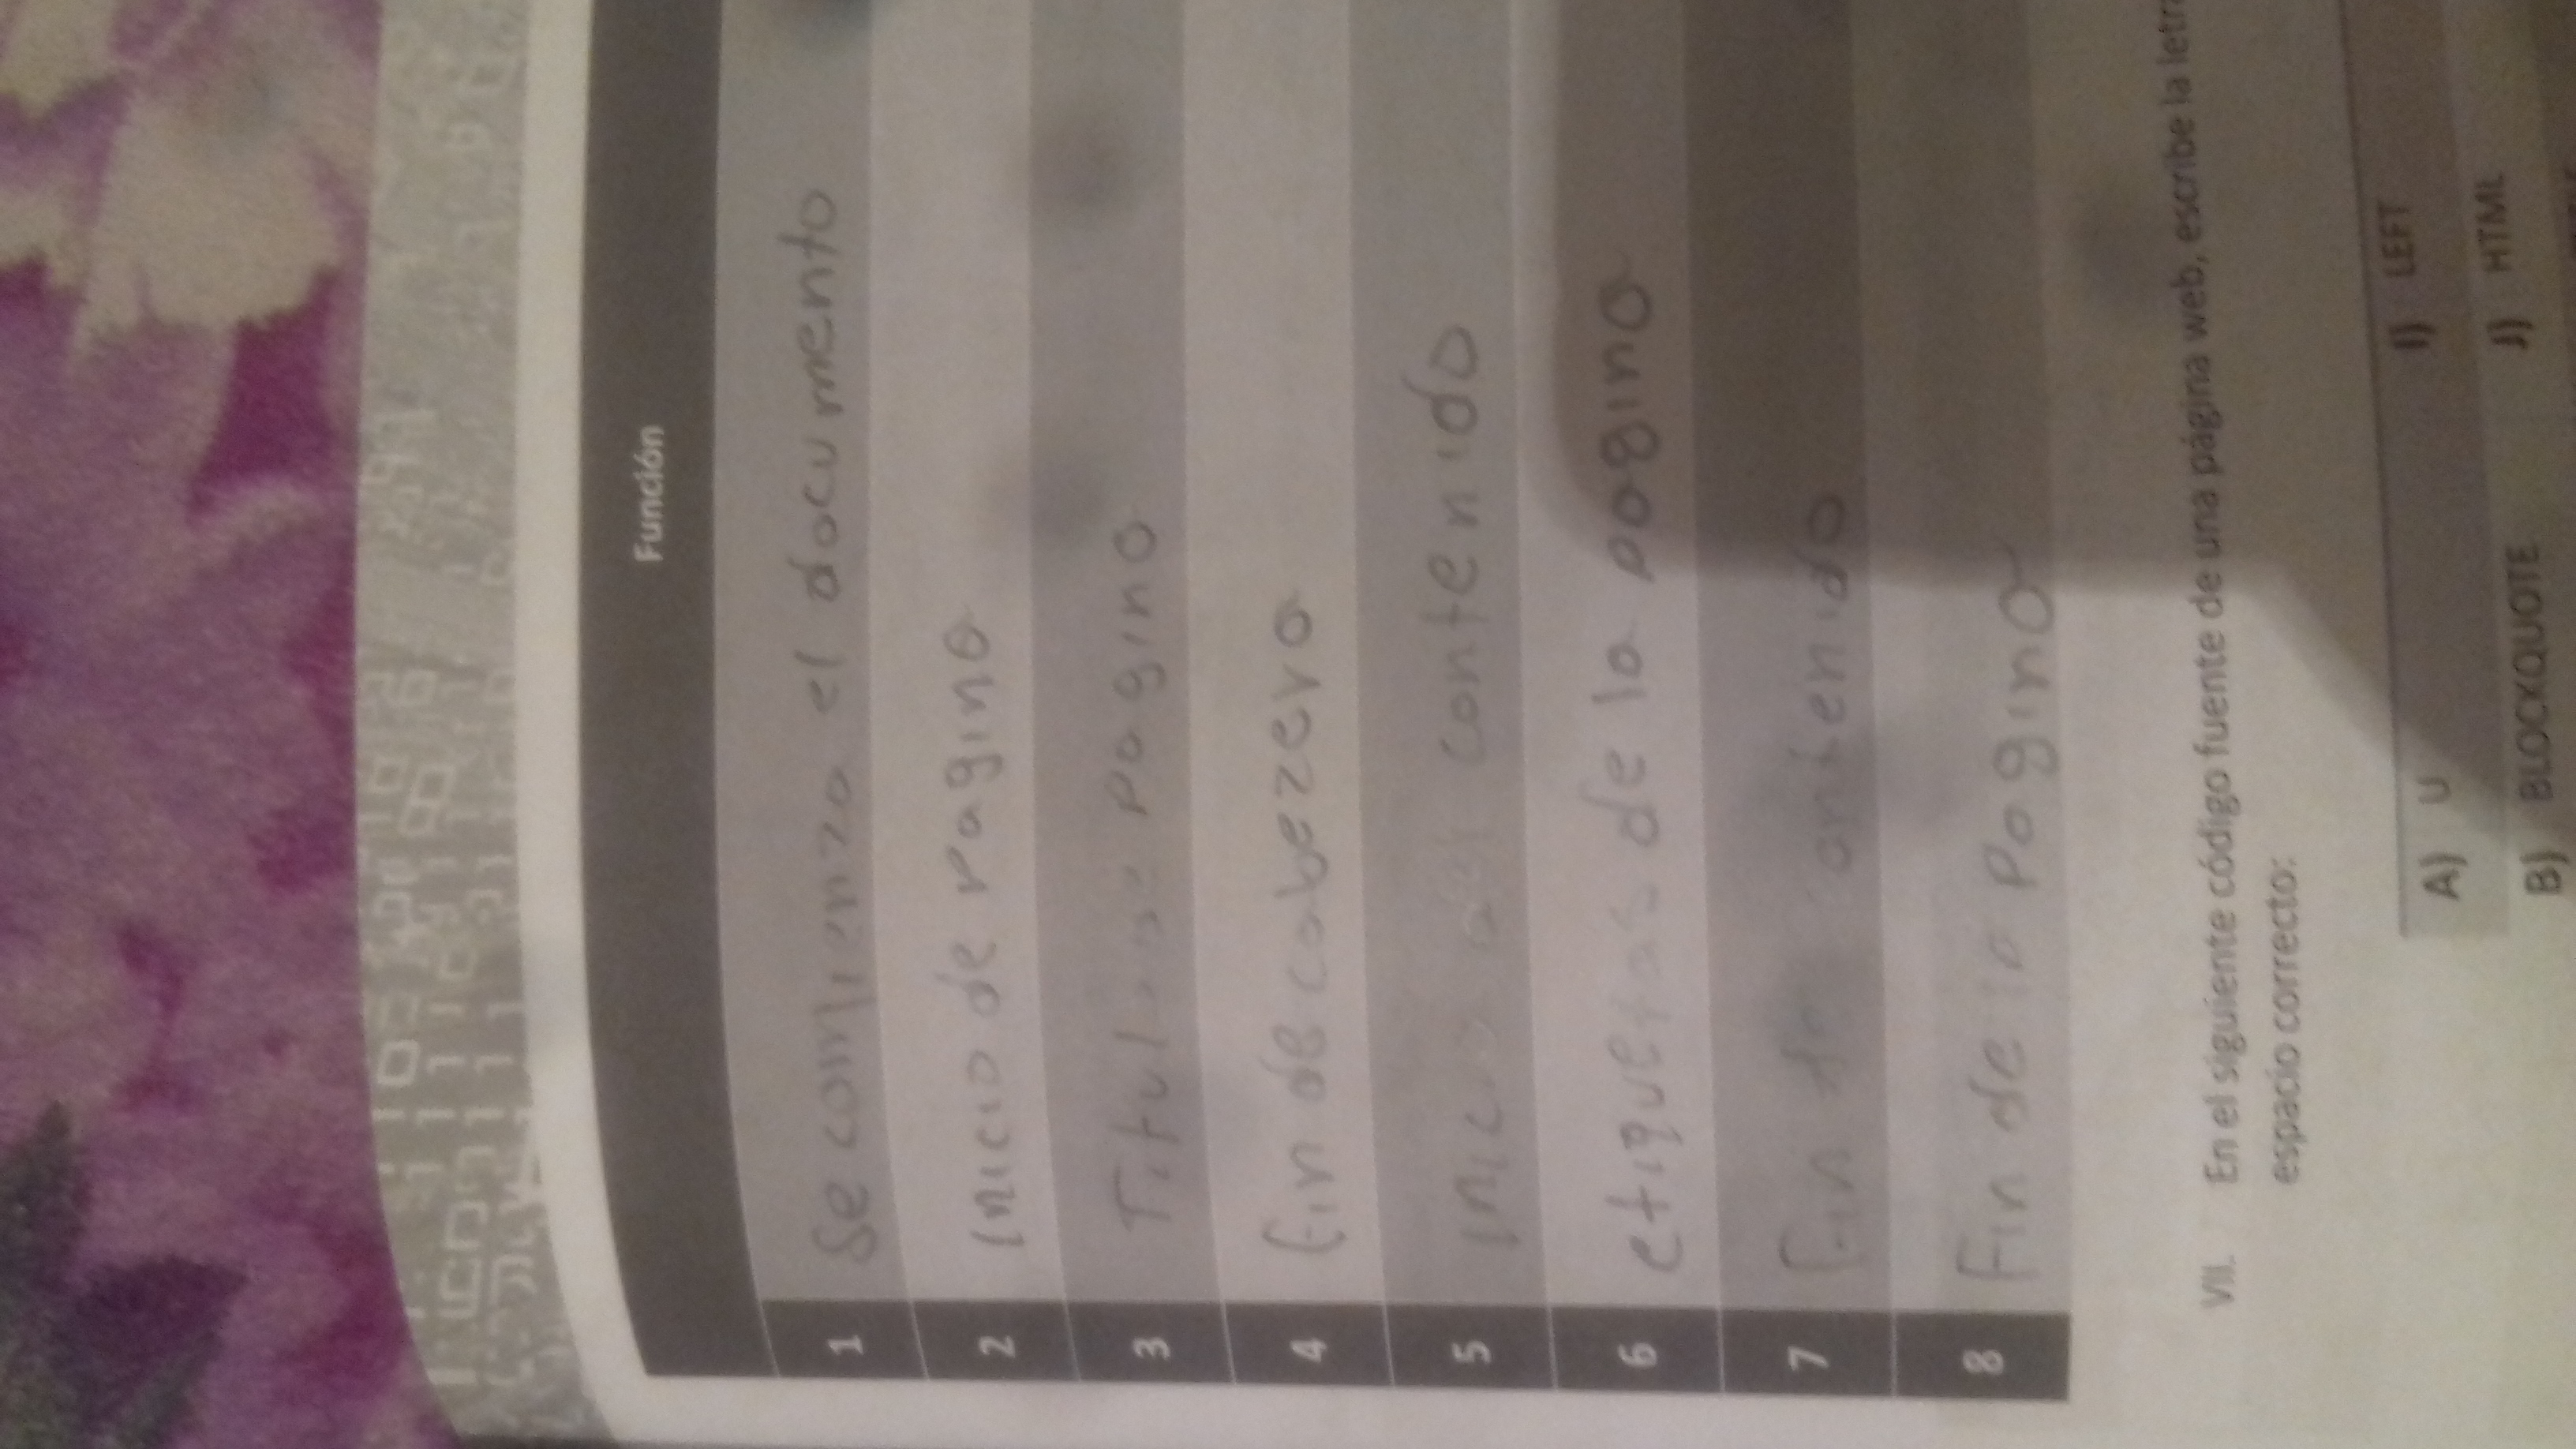 Función
1 Se comienza el documento
2 Inicio de Pagina
3 Titulo de Pagina
4 fin de cabezera
5 inicio del contenido
6 etiquetas de la pagina
7 Fin de contenido
8 Fin de la Pagina
VII. En el siguiente código fuente de una página web, escribe la letr
espacio correcto:
A) U I) LEFT
B) BLOCKQUOTE J) HTML